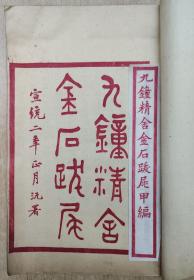 九鐘精舍金石跋尾甲編
九鐘精舍
金石跋尾
宣統二年正月沉署